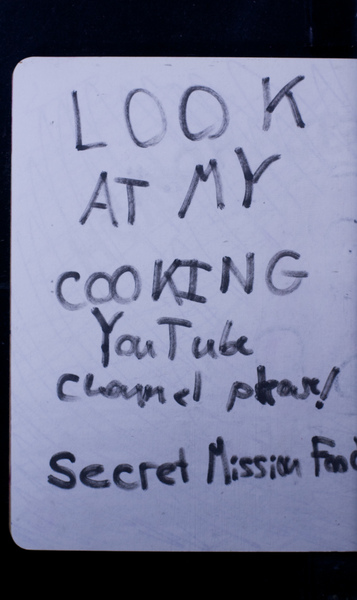 LOOK
AT MY
COOKING
YouTube
Channel please!
Secret Mission